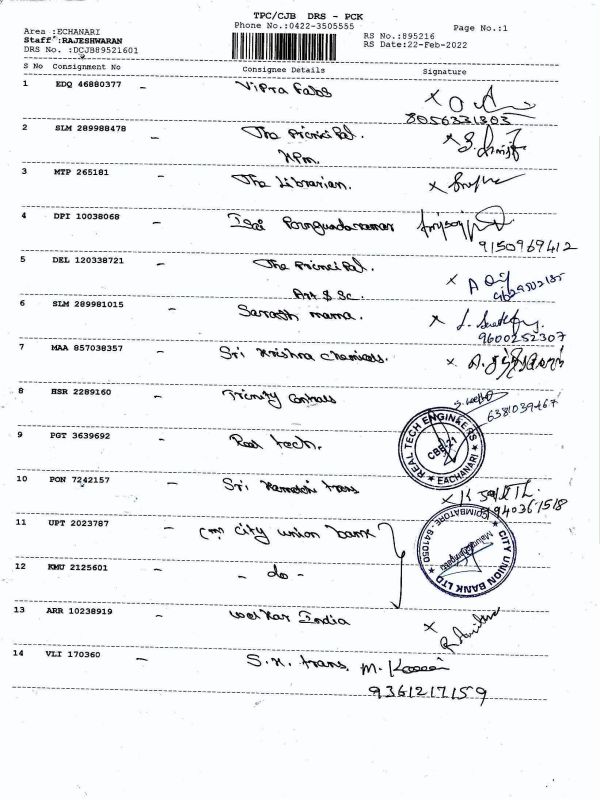 TPC/CJB DRS - PCK
Phone No.:0422-3505555
Page No.:1
Area :ECHANARI
Staff :RAJESHWARAN
DRS No. :DCJB89521601
RS No.:895216
RS Date:22-Feb-2022
S No Consignment No Consignee Details Signature
1 EDQ 46880377 - Vipra Fabs
8056331303
2 SLM 289988478 - The Principal.
NPM.
3 MTP 265181 - The Librarian.
4 DPI 10038068 -
9150969412
5 DEL 120338721 - The Principal.
Art & Sc.
9629502185
6 SLM 289981015 - Sarath mama.
9600252307
7 MAA 857038357 - Sri Krishna Chemicals.
8 HSR 2289160 - Trinity Controls
6381039467
9 PGT 3639692 - Real tech.
REAL TECH ENGINEERS
CBE-21
EACHANARI
10 PON 7242157 - Sri Kamatchi trans
9940361518
11 UPT 2023787 - City union bank
CITY UNION BANK LTD
COIMBATORE - 641050
12 KMU 2125601 - - do -
13 ARR 10238919 - India
14 VLI 170360 - S.K. trans.
9361217159